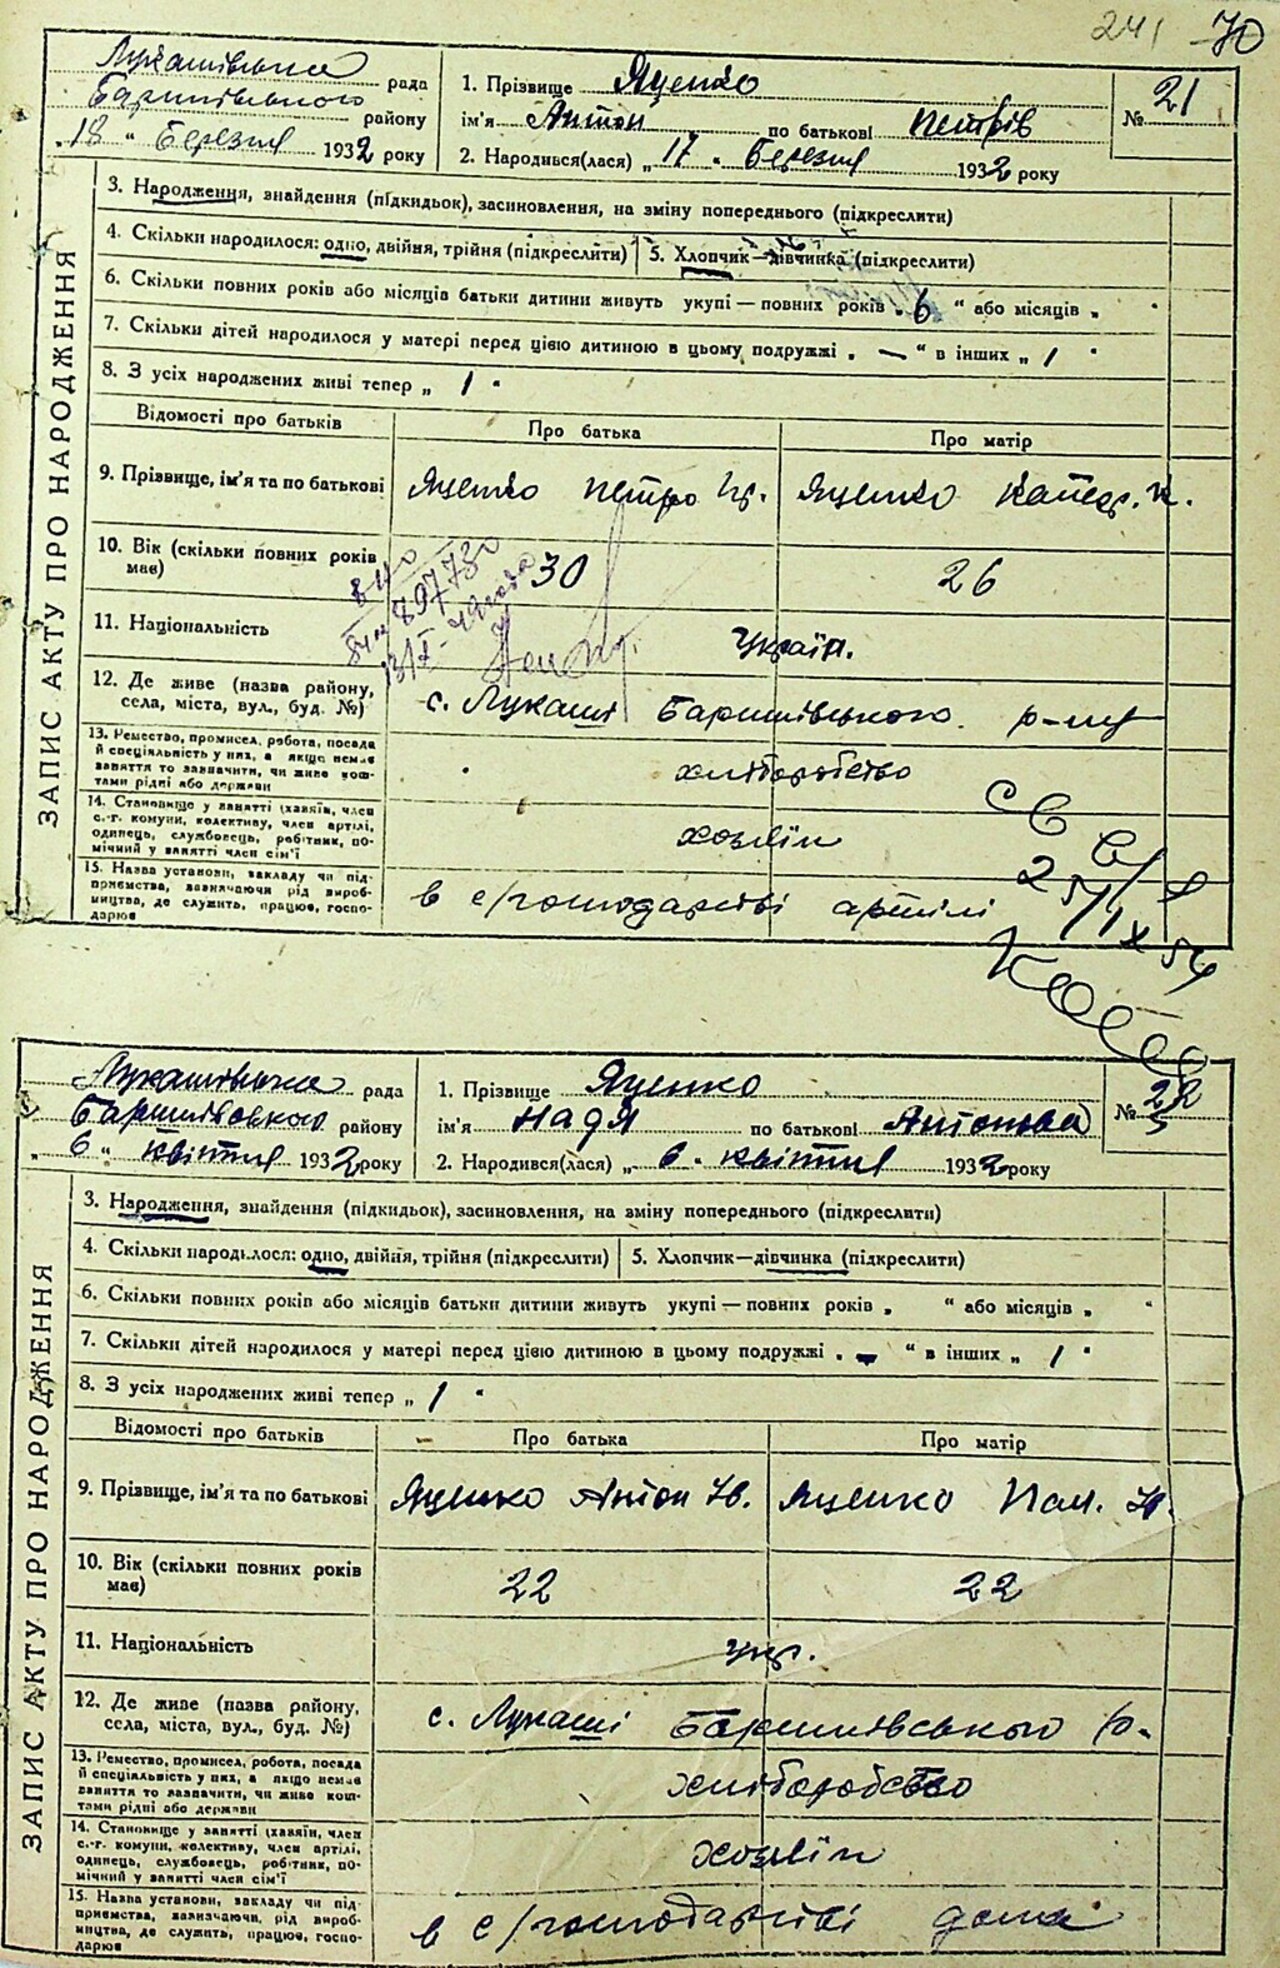 241 70
Лукашівська рада
Баришівського району
„18“ Березня 1932 року
1. Прізвище Яценко
ім'я Антон по батькові Петрів
2. Народився(лася) „17“ Березня 1932 року
№ 21
ЗАПИС АКТУ ПРО НАРОДЖЕННЯ
3. Народження, знайдення (підкидьок), засиновлення, на зміну попереднього (підкреслити)
4. Скільки народилося: одно, двійня, трійня (підкреслити) 5. Хлопчик—дівчинка (підкреслити)
6. Скільки повних років або місяців батьки дитини живуть укупі — повних років „6“ або місяців „ “
7. Скільки дітей народилося у матері перед цією дитиною в цьому подружжі „—“ в інших „1“
8. З усіх народжених живі тепер „1“
Відомості про батьків Про батька Про матір
9. Прізвище, ім'я та по батькові Яценко Петро Яценко Катер.
10. Вік (скільки повних років має) 30 26
11. Національність Україн.
12. Де живе (назва району, села, міста, вул., буд. №) с. Лукаші Баришівського р-ну
13. Ремество, промисел, робота, посада й спеціяльність у них, а якщо немає заняття то зазначити, чи живе коштами рідні або держави хліборобство
14. Становище у занятті (хазяїн, член с.-г. комуни, колективу, член артілі, одинець, службовець, робітник, помічний у занятті член сім'ї хозяїн
15. Назва установи, закладу чи підприємства, зазначаючи рід виробництва, де служить, працює, господарює в с/господарстві артілі
Лукашівська рада
Баришівського району
„6“ квітня 1932 року
1. Прізвище Яценко
ім'я Надя по батькові Антонова
2. Народився(лася) „6“ квітня 1932 року
№ 22
ЗАПИС АКТУ ПРО НАРОДЖЕННЯ
3. Народження, знайдення (підкидьок), засиновлення, на зміну попереднього (підкреслити)
4. Скільки народилося: одно, двійня, трійня (підкреслити) 5. Хлопчик—дівчинка (підкреслити)
6. Скільки повних років або місяців батьки дитини живуть укупі — повних років „ “ або місяців „ “
7. Скільки дітей народилося у матері перед цією дитиною в цьому подружжі „—“ в інших „1“
8. З усіх народжених живі тепер „1“
Відомості про батьків Про батька Про матір
9. Прізвище, ім'я та по батькові Яценко Антон Ів. Яценко
10. Вік (скільки повних років має) 22 22
11. Національність укр.
12. Де живе (назва району, села, міста, вул., буд. №) с. Лукаші Баришівського р-
13. Ремество, промисел, робота, посада й спеціяльність у них, а якщо немає заняття то зазначити, чи живе коштами рідні або держави хліборобство
14. Становище у занятті (хазяїн, член с.-г. комуни, колективу, член артілі, одинець, службовець, робітник, помічний у занятті член сім'ї хозяїн
15. Назва установи, закладу чи підприємства, зазначаючи рід виробництва, де служить, працює, господарює в с/господарстві дома